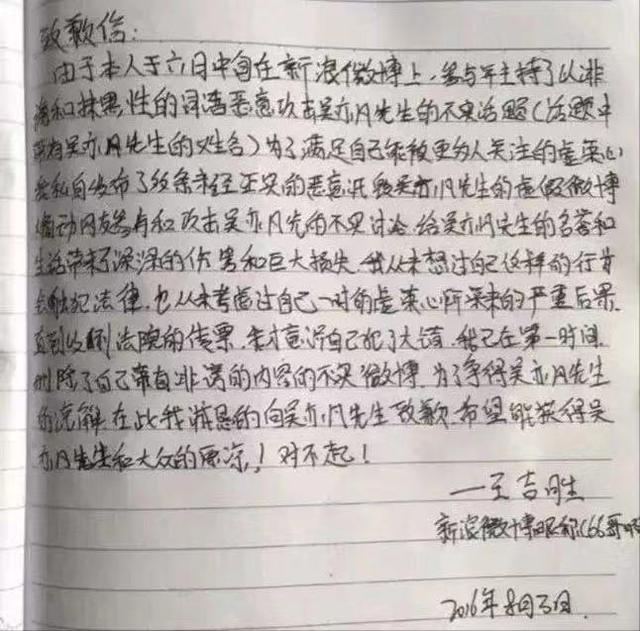 致歉信:
由于本人于六月中旬在新浪微博上,参与并主持了以诽
谤和抹黑性的词语恶意攻击吴亦凡先生的不实话题(话题中
带有吴亦凡先生的姓名)为了满足自己能被更多人关注的虚荣心
我私自发布了多条未经证实的恶意诋毁吴亦凡先生的虚假微博
煽动网友参与和攻击吴亦凡先的不实讨论,给吴亦凡先生的名誉和
生活带来了深深的伤害和巨大损失,我从未想过自己这样的行为
会触犯法律,也从未考虑过自己一时的虚荣心所带来的严重后果
直到收到法院的传票,我才意识自己犯了大错,我已在第一时间
删除了自己带有诽谤的内容的不实微博,为了争得吴亦凡先生
的谅解,在此我诚恳的向吴亦凡先生致歉,希望能获得吴
亦凡先生和大众的原谅,!对不起!
—王吉胜
新浪微博昵称(66哥
2016年8月3日